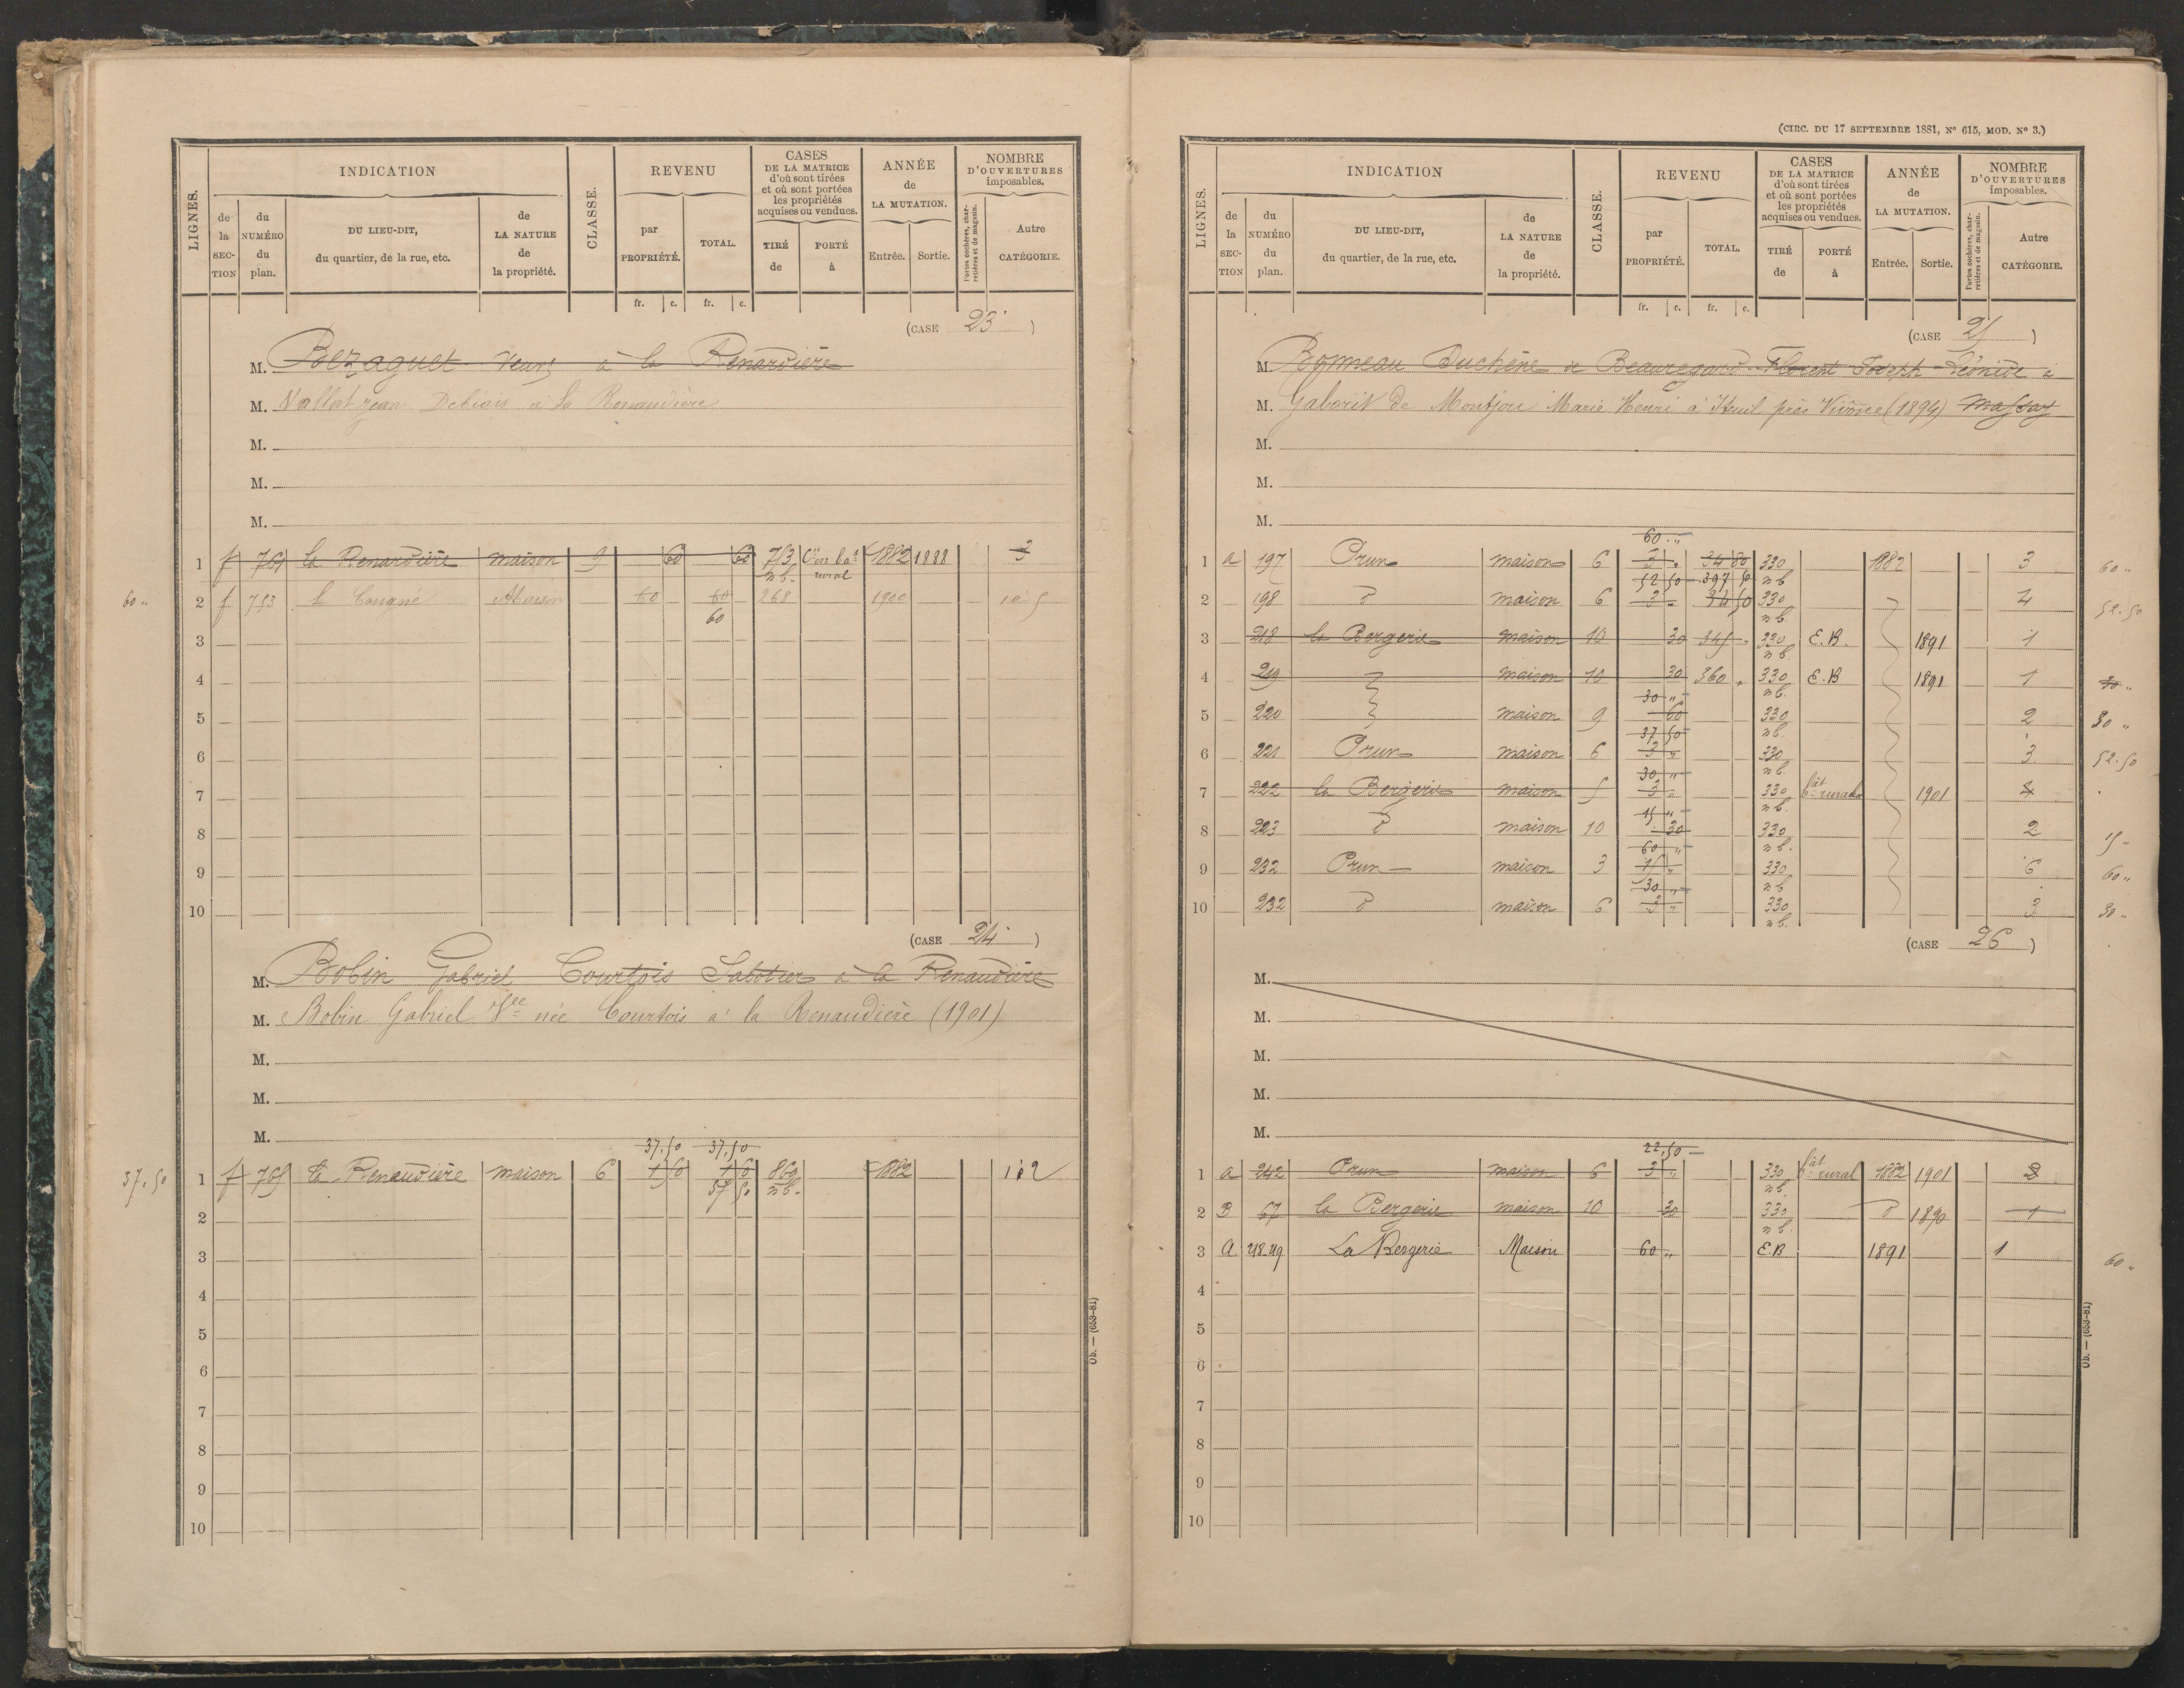 LIGNES.
INDICATION
de la SECTION
du NUMÉRO du plan.
DU LIEU-DIT, du quartier, de la rue, etc.
de LA NATURE de la propriété.
CLASSE.
REVENU
par PROPRIÉTÉ.
TOTAL.
CASES DE LA MATRICE d'où sont tirées et où sont portées les propriétés acquises ou vendues.
TIRÉ de
PORTÉ à
ANNÉE de LA MUTATION.
Entrée.
Sortie.
NOMBRE D'OUVERTURES imposables.
Portes cochères, charretières et de magasin.
Autre CATÉGORIE.
fr. c. fr. c.
(CASE 23)
M. Bezaguet à la Renardière
M. Vallat Jean Debiais à la Renaudière
M.
M.
M.
1 f 761 la Renardière maison 9 60 60 753 nb. Con bat rural 1882 1888 3
60 " 2 f 753 Maison 60 60 60 268 1900
3
4
5
6
7
8
9
10
(CASE 24)
M. Bobin Gabriel Courtois Sabotier à la Renaudière
M. Bobin Gabriel Vee née Courtois à la Renaudière (1901)
M.
M.
M.
37,50 37,50
37,50 1 f 765 la Renaudière maison 6 1 50 1 50 37 50 869 nb. 1882 2
2
3
4
5
6
7
8
9
10
Ob. — (653-81)
(CIRC. DU 17 SEPTEMBRE 1881, N° 615, MOD. N° 3.)
LIGNES.
INDICATION
de la SECTION
du NUMÉRO du plan.
DU LIEU-DIT, du quartier, de la rue, etc.
de LA NATURE de la propriété.
CLASSE.
REVENU
par PROPRIÉTÉ.
TOTAL.
CASES DE LA MATRICE d'où sont tirées et où sont portées les propriétés acquises ou vendues.
TIRÉ de
PORTÉ à
ANNÉE de LA MUTATION.
Entrée.
Sortie.
NOMBRE D'OUVERTURES imposables.
Portes cochères, charretières et de magasin.
Autre CATÉGORIE.
fr. c. fr. c.
(CASE 25)
M. Bonneau Duchêne de Beauregard Florent Joseph Léonide à
M. Gaborit de Montjou Marie Henri à Iteuil près Vivône (1894) Massay
M.
M.
M.
60 "
1 a 197 Prun maison 6 3 " 34 80 330 nb 1882 3 60 "
52 50 397 50
2 198 d° maison 6 3 " 34 50 330 nb. 4 52.50
3 218 la Bergerie maison 10 30 345 " 330 nb. E.B. 1891 1
4 219 maison 10 30 360 " 330 nb. E.B 1891 1 30 "
30 "
5 220 maison 9 60 330 nb. 2 30 "
37 50
6 221 Prun maison 6 3 " 330 nb. 3 52.50
30 "
7 222 la Bergerie maison 5 3 " 330 nb. bât rural 1901 4
15 "
8 223 d° maison 10 30 330 nb. 2 15 "
60 "
9 232 Prun maison 3 15 " 330 nb 6 60 "
30 "
10 232 d° maison 6 3 " 330 nb. 3 30 "
(CASE 26)
M.
M.
M.
M.
M.
22,50
1 a 242 Prun maison 6 3 " 330 nb. bât rural 1882 1901 2
2 B 67 la Bergerie maison 10 30 330 nb. d° 1890 1
3 a 218.219 La Bergerie Maison 60 " E.B 1891 1 60 "
4
5
6
7
8
9
10
Ob. — (653-81)